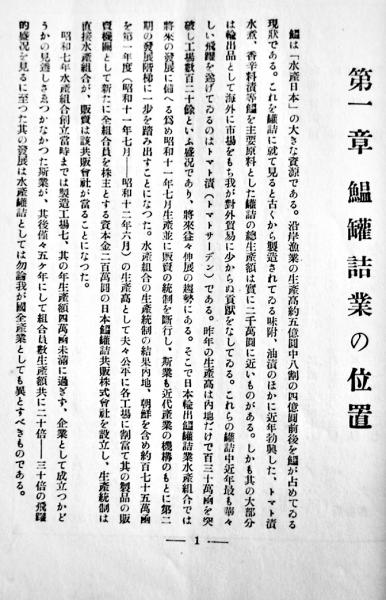 第一章　鰮罐詰業の位置
鰮は「水產日本」の大きな資源である。沿岸漁業の生產高約五億圓中八割の四億圓前後を鰮が占めてゐる
現狀である。これを罐詰に就て見ると古くから製造されてゐる味附、油漬のほかに近年勃興した、トマト漬
水煮、香辛料漬等鰮を主要原料とした罐詰の總生產額は實に二千萬圓に近いものがある。しかも其の大部分
は輸出品として海外に市場をもち我が對外貿易に少からぬ貢獻をなしてゐる。これらの罐詰中近年最も華々
しい飛躍を遂げてゐるのはトマト漬（トマトサーデン）である。昨年の生產高は內地だけで百三十萬凾を突
破し工場數百二十餘といふ盛況であり、將來益々伸展の趨勢にある。そこで日本輸出鰮罐詰業水產組合では
將來の發展に備へる爲め昭和十一年七月生產並に販賣の統制を斷行し、斯業も近代產業の機構のもとに第二
期の發展階梯に一步を踏み出すことになつた。水產組合の生產統制の結果內地、朝鮮を含め約百七十五萬凾
を第一年度（昭和十一年七月——昭和十二年六月）の生產高として夫々公平に各工場に割當て其の製品の販
賣機關として新たに全組合員を株主とする資本金二百萬圓の日本鰮罐詰共販株式會社を設立し、生產統制は
直接水產組合が、販賣は該共販會社が當ることになつた。
昭和七年水產組合創立當時までは製造工場七、其の年生產額四萬凾未滿に過ぎず、企業として成立つかど
うかの見透しさゑつかなかつた斯業が、其後僅々五ケ年にして組合員數生產額共に二十倍——三十倍の飛躍
的盛況を見るに至つた其の發展は水產罐詰としては勿論我が國全產業としても異とすべきものである。
— 1 —